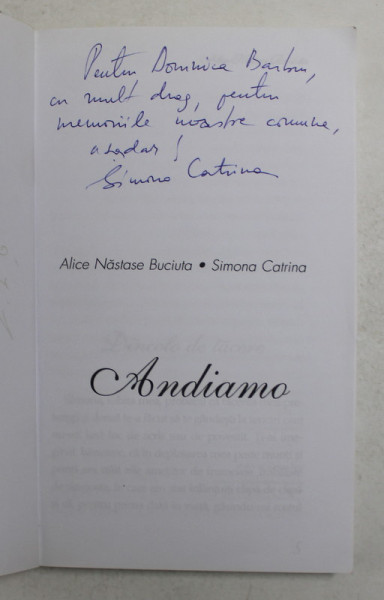 Pentru Dominica Barbu,
cu mult drag, pentru
memoriile noastre comune,
așadar!
Simona Catrina
Alice Năstase Buciuta • Simona Catrina
Andiamo